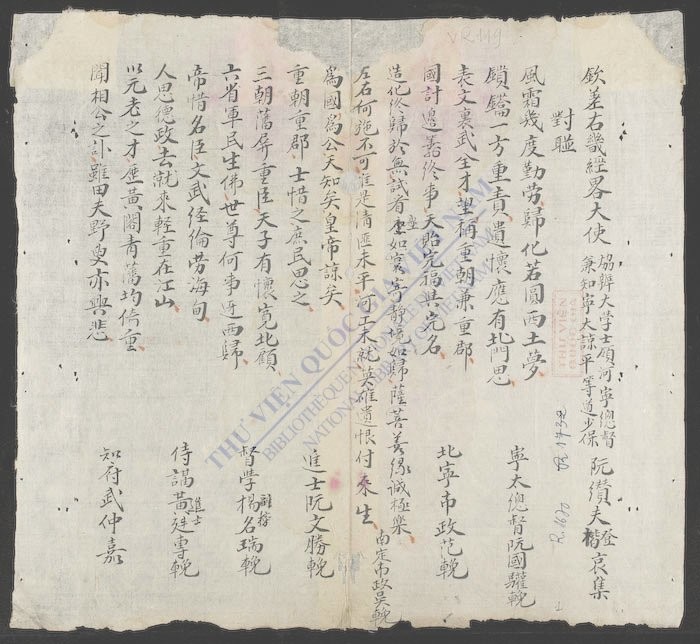 欽差右畿經畧大使
協辦大学士領河寧總督
兼知寧大諒平等道少保
阮纘夫
哀集
對聯
風霜幾度勤劳歸化若圓西土夢
鎖鑰一方重責遺懷應有北門思
寧太總督阮國驩輓
表文裏武全才望稱重朝兼重郡
國計邊籌終事天貽完福世完名
北寧布政范輓
造化终歸於無試看
寄静境如歸薩菩善缘诚極樂
左右何施不可
是清匪未平河工未就英雄遺恨付来生
南定布政吴輓
為國為公天知矣皇帝諒矣
重朝重郡士惜之庶民思之
進士阮文勝輓
三朝藩屏重臣天子有懷寬北顧
六省軍民生佛世尊何事迓西歸
督學楊名瑞輓
帝惜名臣文武经倫劳海甸
人思德政去就来輕重在江山
侍講黃
進士
專輓
以元老之才歷黃閣青藩均倚重
聞相公之訃雖田夫野叟亦興悲
知府武仲嘉
VR119
R.1670
THƯ VIỆN QUỐC GIA VIỆT NAM
BIBLIOTHÈQUE NATIONALE DU VIETNAM
NATIONAL LIBRARY OF VIETNAM